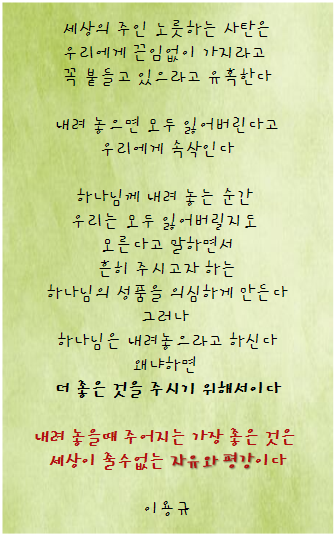 세상의 주인 노릇하는 사탄은
우리에게 끈임없이 가지라고
꼭 붙들고 있으라고 유혹한다
내려 놓으면 모두 잃어버린다고
우리에게 속삭인다
하나님께 내려 놓는 순간
우리는 모두 잃어버릴지도
모른다고 말하면서
흔히 주시고자 하는
하나님의 성품을 의심하게 만든다
그러나
하나님은 내려놓으라고 하신다
왜냐하면
더 좋은 것을 주시기 위해서이다
내려 놓을때 주어지는 가장 좋은 것은
세상이 줄수없는 자유와 평강이다
이용규